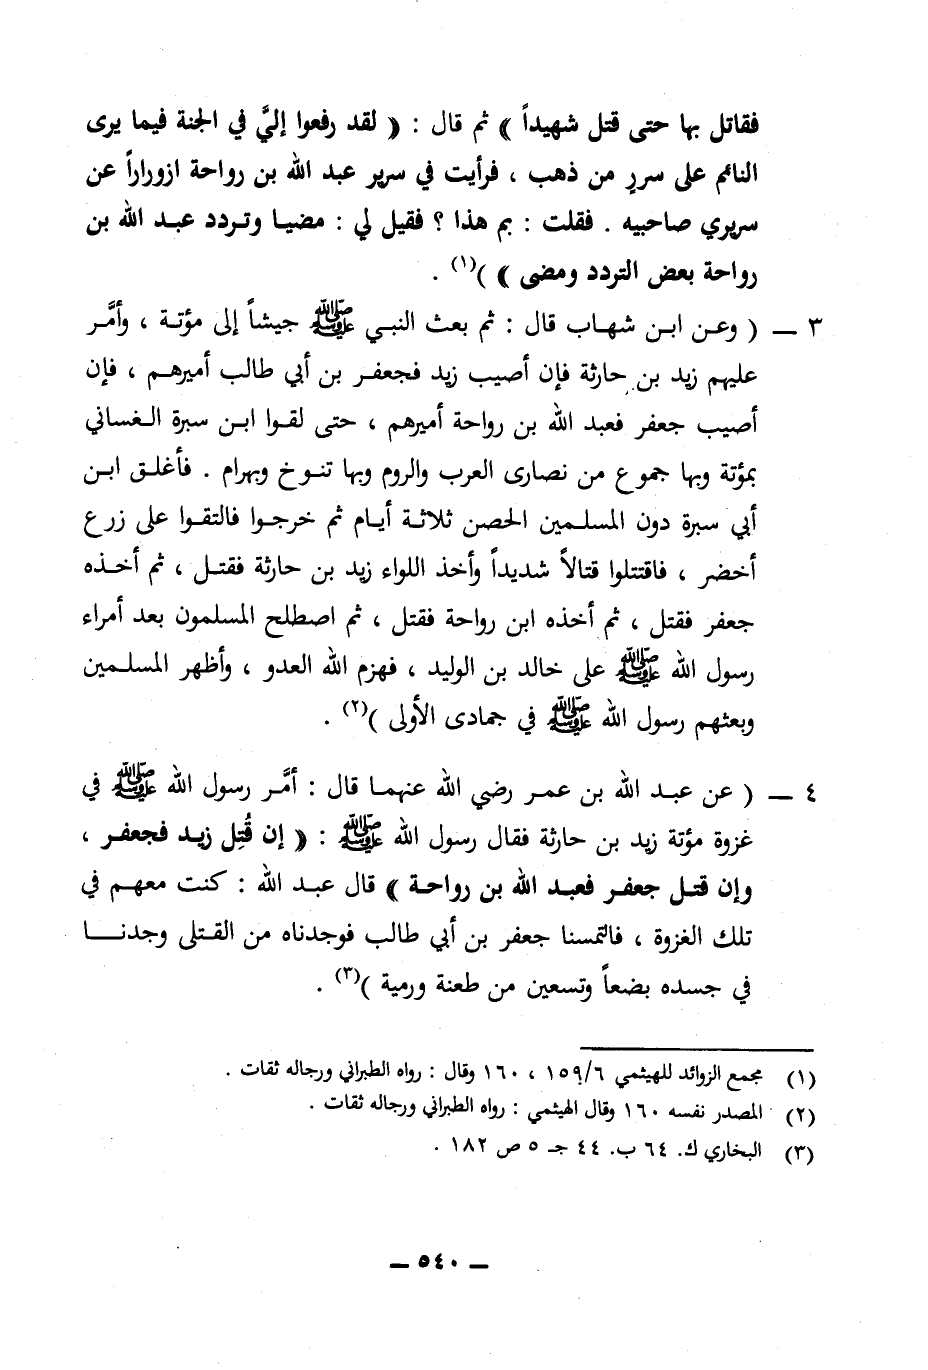 فقاتل بها حتى قتل شهيداً » ثم قال : « لقد رفعوا إليَّ في الجنة فيما يرى
النائم على سررٍ من ذهب ، فرأيت في سرير عبد الله بن رواحة ازوراراً عن
سريري صاحبيه . فقلت : بم هذا ؟ فقيل لي : مضيا وتردد عبد الله بن
رواحة بعض التردد ومضى » )(١) .
٣ ــ ( وعن ابن شهاب قال : ثم بعث النبي ﷺ جيشاً إلى مؤتة ، وأمَّر
عليهم زيد بن حارثة فإن أصيب زيد فجعفر بن أبي طالب أميرهم ، فإن
أصيب جعفر فعبد الله بن رواحة أميرهم ، حتى لقوا ابن سبرة الغساني
بمؤتة وبها جموع من نصارى العرب والروم وبها تنوخ وبهرام . فأغلق ابن
أبي سبرة دون المسلمين الحصن ثلاثة أيام ثم خرجوا فالتقوا على زرع
أخضر ، فاقتتلوا قتالاً شديداً وأخذ اللواء زيد بن حارثة فقتل ، ثم أخذه
جعفر فقتل ، ثم أخذه ابن رواحة فقتل ، ثم اصطلح المسلمون بعد أمراء
رسول الله ﷺ على خالد بن الوليد ، فهزم الله العدو ، وأظهر المسلمين
وبعثهم رسول الله ﷺ في جمادى الأولى )(٢) .
٤ ــ ( عن عبد الله بن عمر رضي الله عنهما قال : أمَّر رسول الله ﷺ في
غزوة مؤتة زيد بن حارثة فقال رسول الله ﷺ : « إن قُتِل زيد فجعفر ،
وإن قتل جعفر فعبد الله بن رواحة » قال عبد الله : كنت معهم في
تلك الغزوة ، فالتمسنا جعفر بن أبي طالب فوجدناه من القتلى وجدنا
في جسده بضعاً وتسعين من طعنة ورمية )(٣) .
(١) مجمع الزوائد للهيثمي ١٥٩/٦ ، ١٦٠ وقال : رواه الطبراني ورجاله ثقات .
(٢) المصدر نفسه ١٦٠ وقال الهيثمي : رواه الطبراني ورجاله ثقات .
(٣) البخاري ك. ٦٤ ب. ٤٤ جـ ٥ ص ١٨٢ .
ــ ٥٤٠ ــ